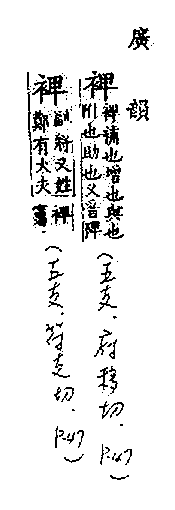 廣韻
裨 裨補也增也與也
附也助也又音陴
(五支．府移切．P.47)
裨 副將又姓
鄭有大夫
裨
竈
(五支．符支切．P.47)